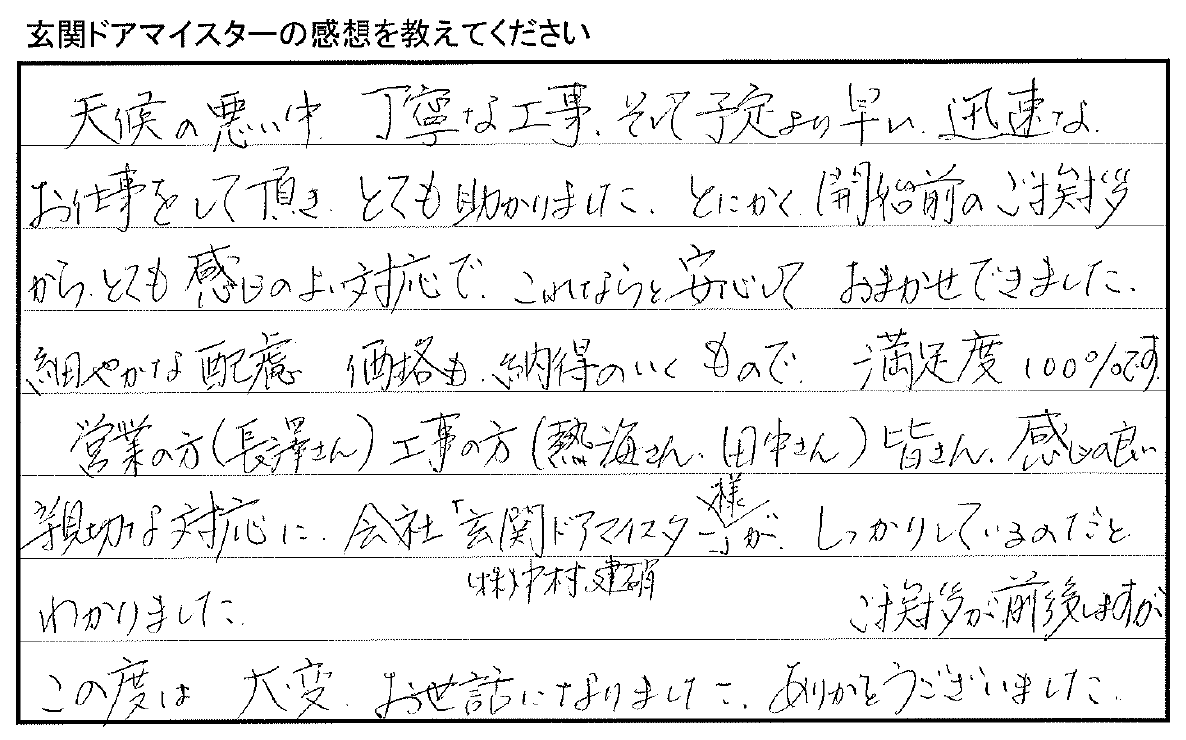 玄関ドアマイスターの感想を教えてください
天候の悪い中、丁寧な工事、そして予定より早い、迅速な、
お仕事をして頂き、とても助かりました。とにかく、開始前のご挨拶
から、とても感じのよい対応で、これならと、安心して おまかせできました。
細やかな配慮 価格も、納得のいくもので、満足度100%です。
営業の方(長澤さん)工事の方(熱海さん、田中さん)皆さん、感じの良い
親切な対応に、会社「玄関ドアマイスター」様が、しっかりしているのだと、
(株)中村建硝
わかりました。 ご挨拶が前後しますが
この度は 大変、お世話になりました。ありがとうございました。